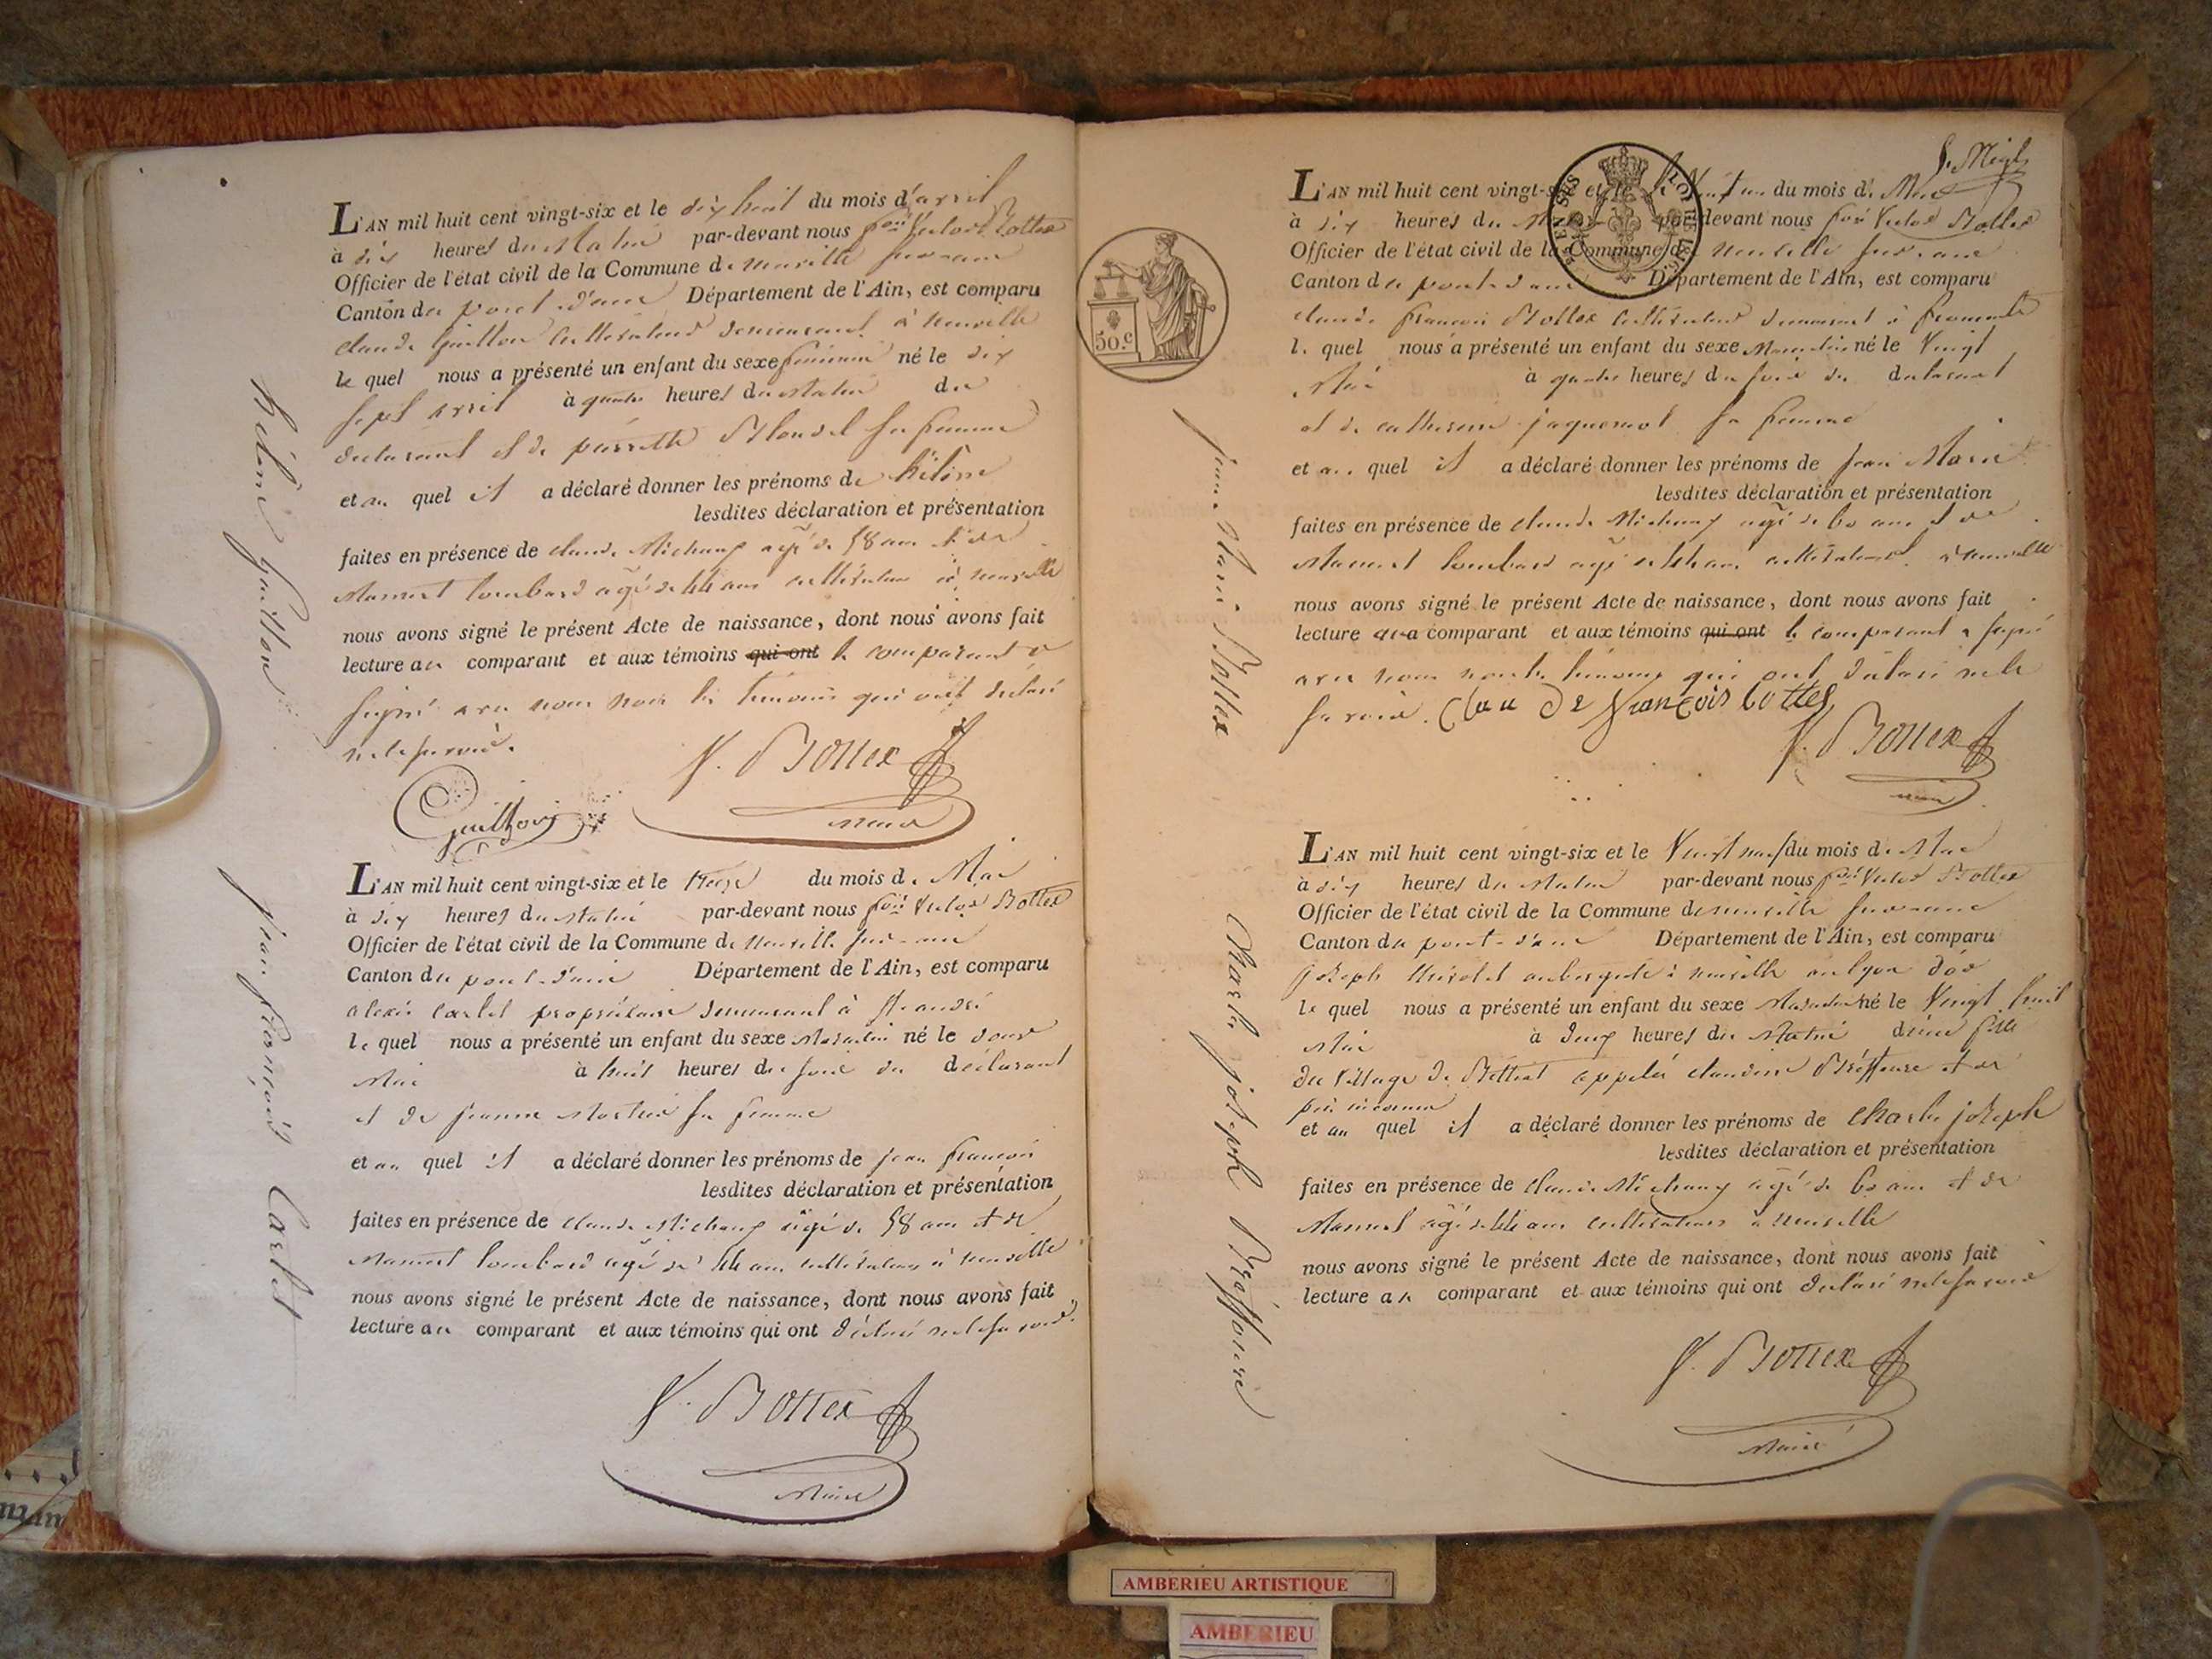 L'AN mil huit cent vingt-six et le dix huit du mois d'avril
à dix heures du Matin par-devant nous fois Victor Bottex
Officier de l'état civil de la Commune de neuville sur ain
Canton du pont d'ain Département de l'Ain, est comparu
claude Guillon cultivateur demeurant à neuville
le quel nous a présenté un enfant du sexe féminin né le dix
sept avril à quatre heures du Matin du
declarant et de pierrette Blondel sa femme
et au quel il a déclaré donner les prénoms de hélène
lesdites déclaration et présentation
faites en présence de claude Michaux agé de 58 ans et de
lombard agé de 44 ans cultivateurs à neuville
nous avons signé le présent Acte de naissance, dont nous avons fait
lecture au comparant et aux témoins qui ont le comparant a
signé avec nous non les temoins qui ont declaré
ne le savoir.
Guillon
V. Bottex
maire
hélène Guillon
L'AN mil huit cent vingt-six et le treize du mois de Mai
à dix heures du Matin par-devant nous fois Victor Bottex
Officier de l'état civil de la Commune de Neuville sur-ain
Canton du pont-d'ain Département de l'Ain, est comparu
alexis Carlet propriétaire demeurant à St andré
le quel nous a présenté un enfant du sexe Masculin né le douze
Mai à huit heures du soir du déclarant
et de jeanne sa femme
et au quel il a déclaré donner les prénoms de jean françois
lesdites déclaration et présentation
faites en présence de claude Michaux agé de 58 ans et de
lombard agé de 44 ans cultivateurs à neuville
nous avons signé le présent Acte de naissance, dont nous avons fait
lecture au comparant et aux témoins qui ont déclaré ne le savoir.
V. Bottex
Maire
jean françois Carlet
50.c
L'AN mil huit cent vingt-six et le vingt un du mois de Mai
à dix heures du Matin par-devant nous fois Victor Bottex
Officier de l'état civil de la Commune de neuville sur ain
Canton du pont-d'ain Département de l'Ain, est comparu
claude françois Bottex cultivateur demeurant à fromente
le quel nous a présenté un enfant du sexe Masculin né le Vingt
Mai à quatre heures du soir du declarant
et de catherine jaquemot sa femme
et au quel il a déclaré donner les prénoms de jean Marie
lesdites déclaration et présentation
faites en présence de claude Michaux agé de 60 ans et de
lombard agé de 44 ans cultivateurs à neuville
nous avons signé le présent Acte de naissance, dont nous avons fait
lecture au comparant et aux témoins qui ont le comparant a signé
avec nous non les temoins qui ont déclaré ne le
savoir. Clau De françois bottex
V. Bottex
maire
jean Marie Bottex
L'AN mil huit cent vingt-six et le Vingt neuf du mois de Mai
à dix heures du Matin par-devant nous fois Victor Bottex
Officier de l'état civil de la Commune de neuville sur-ain
Canton du pont-d'ain Département de l'Ain, est comparu
joseph aubergiste à neuville au lyon d'or
le quel nous a présenté un enfant du sexe Masculin né le Vingt huit
Mai à deux heures du Matin d'une fille
du Village de appelée claudine et de
père inconnu
et au quel il a déclaré donner les prénoms de Charles joseph
lesdites déclaration et présentation
faites en présence de claude Michaux agé de 60 ans et de
agé de 44 ans cultivateurs à neuville
nous avons signé le présent Acte de naissance, dont nous avons fait
lecture au comparant et aux témoins qui ont declaré ne le savoir
V. Bottex
Maire
Charles joseph
AMBERIEU ARTISTIQUE
AMBERIEU